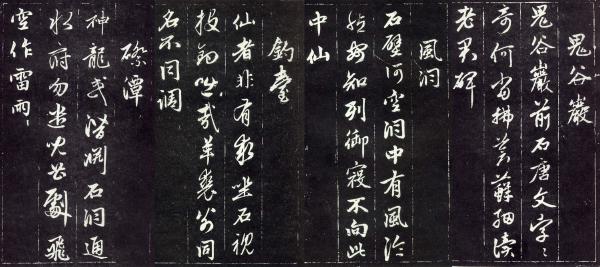 鬼谷巖
鬼谷巖前石唐文字〻
奇何當拂蒼蘚細讀
老君碑
風洞
石壁何空洞中有風泠
然安知列御寇不向此
中仙
釣臺
仙者非有求坐石視
投釣咄哉羊裘公同
名不同調
磜潭
神龍或潛淵石洞通
水府勿 飛
空作雷雨